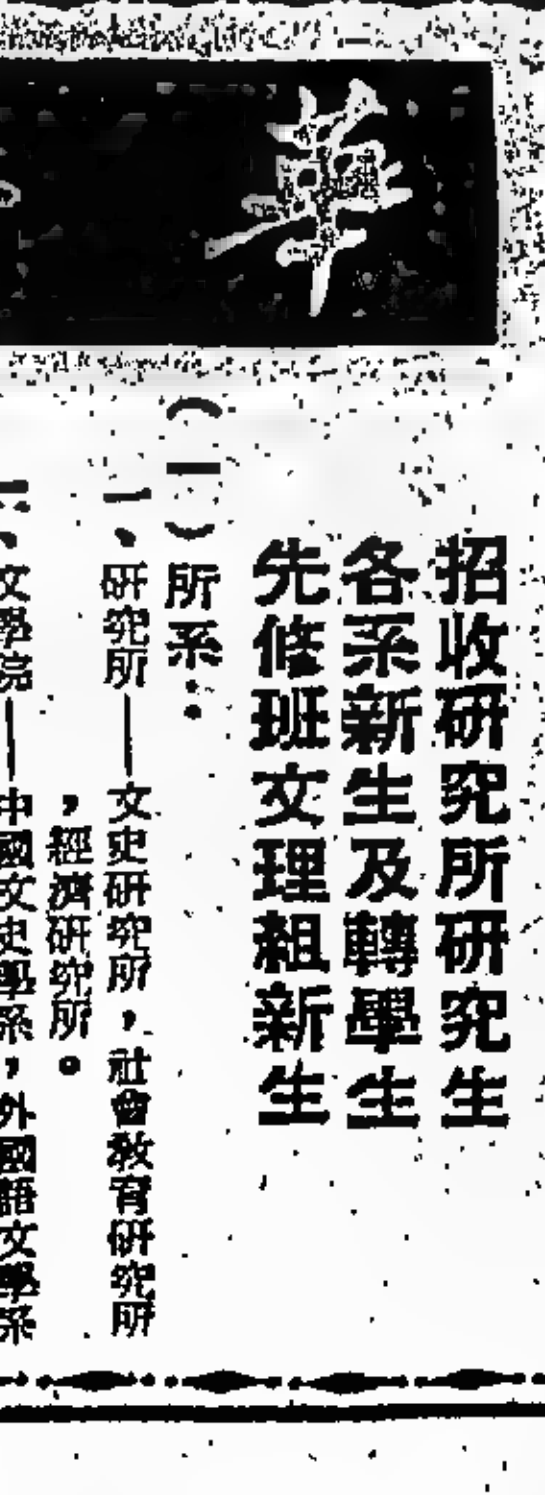 華
招收研究所研究生
各系新生及轉學生
先修班文理組新生
（一）所系：
一、研究所——文史研究所，社會教育研究所
，經濟研究所。
、文學院——中國文史學系，外國語文學系